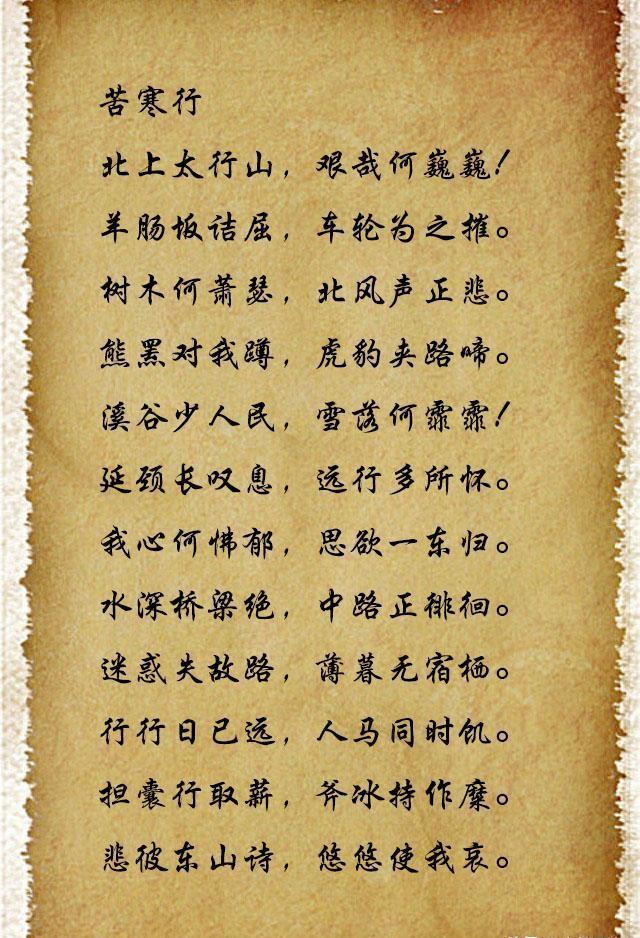 苦寒行
北上太行山，艰哉何巍巍！
羊肠坂诘屈，车轮为之摧。
树木何萧瑟，北风声正悲。
熊罴对我蹲，虎豹夹路啼。
溪谷少人民，雪落何霏霏！
延颈长叹息，远行多所怀。
我心何怫郁，思欲一东归。
水深桥梁绝，中路正徘徊。
迷惑失故路，薄暮无宿栖。
行行日已远，人马同时饥。
担囊行取薪，斧冰持作糜。
悲彼东山诗，悠悠使我哀。